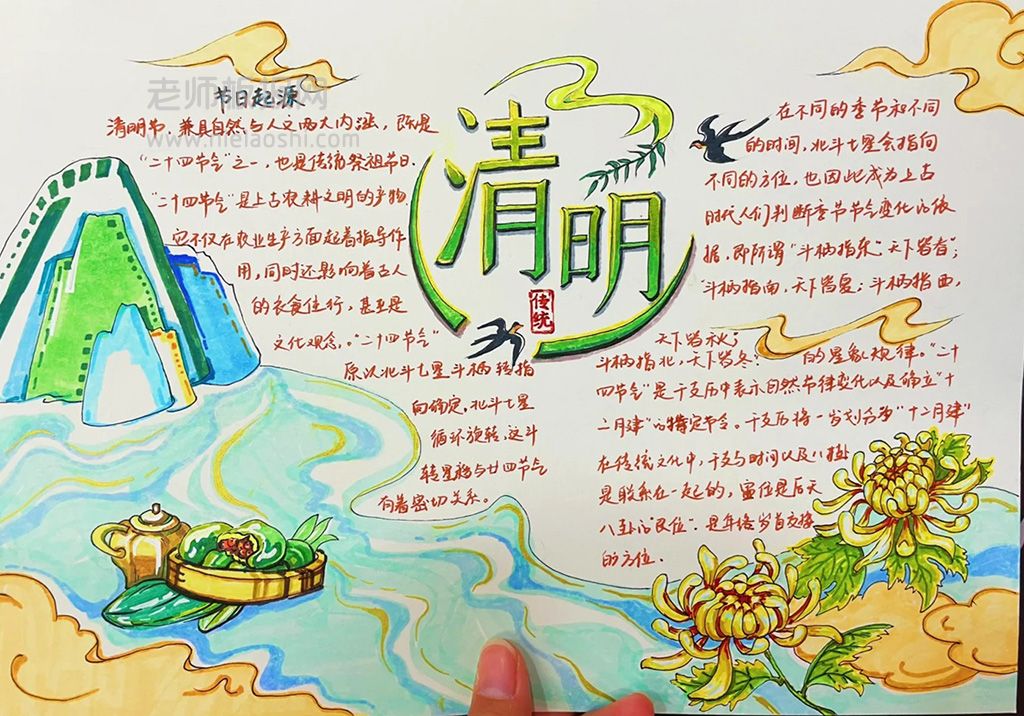 节日起源
清明节,兼具自然与人文两大内涵,既是
"二十四节气"之一,也是传统祭祖节日.
"二十四节气"是上古农耕文明的产物.
它不仅在农业生产方面起着指导作
用,同时还影响着古人
的衣食住行,甚至是
文化观念。"二十四节气"
原以北斗七星斗柄转指
向确定,北斗七星
循环旋转,这斗
转星移与廿四节气
有着密切关系。
清明
传统
在不同的季节和不同
的时间,北斗七星会指向
不同的方位,也因此成为上古
时代人们判断季节节气变化的依
据,即所谓"斗柄指东,天下皆春;
斗柄指南,天下皆夏;斗柄指西,
天下皆秋;
斗柄指北,天下皆冬."的星象规律。"二十
四节气"是干支历中表示自然节律变化以及确立"十
二月建"的特定节令。干支历将一岁划分为"十二月建"
在传统文化中,干支与时间以及八卦
是联系在一起的,寅位是后天
八卦的"艮位".是年终岁首交接
的方位.
www.meiaoshi.com